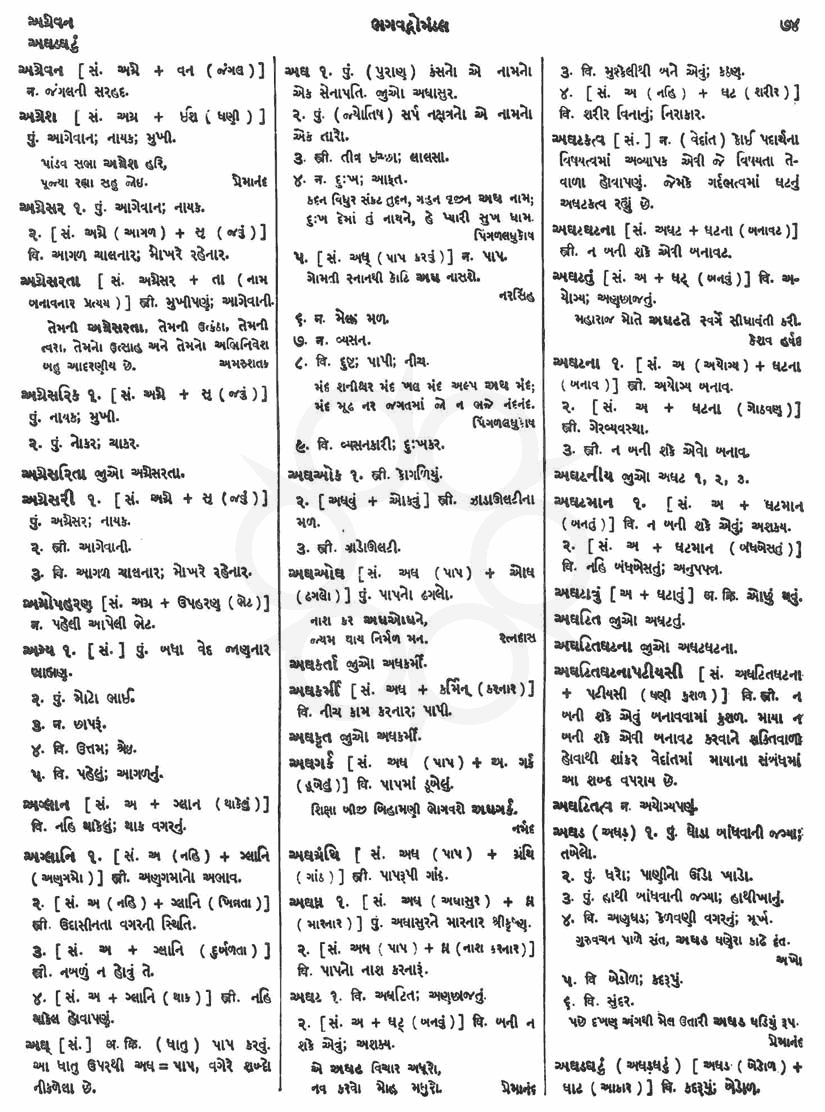 અગ્રેવન
અઘડઘટું
ભગવદ્ગોમંડલ
૭૪
અગ્રેવન [ સં. અગ્રે + વન ( જંગલ ) ]
ન. જંગલની સરહદ.
અગ્રેશ [ સં. અગ્ર + ઈશ ( ધણી ) ]
પું. આગેવાન; નાયક; મુખી.
પાંડવ સભા અગ્રેશ હરિ,
પૂજ્યા રહ્યા સહુ જોઇ. પ્રેમાનંદ
અગ્રેસર ૧. પું. આગેવાન; નાયક.
૨. [ સં. અગ્રે ( આગળ ) + સૃ ( જવું ) ]
વિ. આગળ ચાલનાર; મોખરે રહેનાર.
અગ્રેસરતા [ સં. અગ્રેસર + તા ( નામ
બનાવનાર પ્રત્યય ) ] સ્ત્રી. મુખીપણું; આગેવાની.
તેમની અગ્રેસરતા, તેમની ઉત્કંઠા, તેમની
ત્વરા, તેમનો ઉત્સાહ અને તેમનો અભિનિવેશ
બહુ આદરણીય છે. અમરુશતક
અગ્રેસરિક ૧. [ સં. અગ્રે + સૃ ( જવું ) ]
પું. નાયક; મુખી.
૨. પું. નોકર; ચાકર.
અગ્રેસરિતા જુઓ અગ્રેસરતા.
અગ્રેસરી ૧. [ સં. અગ્રે + સૃ ( જવું ) ]
પું. અગ્રેસર; નાયક.
૨. સ્ત્રી. આગેવાની.
૩. વિ. આગળ ચાલનાર; મોખરે રહેનાર.
અગ્રોપહરણ [ સં. અગ્ર + ઉપહરણ ( ભેટ ) ]
ન. પહેલી આપેલી ભેટ.
અગ્ર્ય ૧. [ સં. ] પું. બધા વેદ જાણનાર
બ્રાહ્મણ.
૨. પું. મોટો ભાઈ.
૩. ન. છાપરૂં.
૪. વિ. ઉત્તમ; શ્રેષ્ઠ.
૫. વિ. પહેલું; આગળનું.
અગ્લાન [ સં. અ + ગ્લાન ( થાકેલું ) ]
વિ. નહિ થાકેલું; થાક વગરનું.
અગ્લાનિ ૧. [ સં. અ ( નહિ ) + ગ્લાનિ
( અણગમો ) ] સ્ત્રી. અણગમાનો અભાવ.
૨. [ સં. અ ( નહિ ) + ગ્લાનિ ( ખિન્નતા ) ]
સ્ત્રી. ઉદાસીનતા વગરની સ્થિતિ.
૩. [ સં. અ + ગ્લાનિ ( દુર્બળતા ) ]
સ્ત્રી. નબળું ન હોવું તે.
૪. [ સં. અ + ગ્લાનિ ( થાક ) ] સ્ત્રી. નહિ
થાકેલ હોવાપણું.
અઘ્ [ સં. ] અ. ક્રિ. ( ધાતુ ) પાપ કરવું.
આ ધાતુ ઉપરથી અઘ = પાપ, વગેરે શબ્દો
નીકળેલા છે.
અઘ ૧. પું. ( પુરાણ ) કંસનો એ નામનો
એક સેનાપતિ. જુઓ અઘાસુર.
૨. પું. ( જ્યોતિષ ) સર્પ નક્ષત્રનો એ નામનો
એક તારો.
૩. સ્ત્રી. તીવ્ર ઇચ્છા; લાલસા.
૪. ન. દુઃખ; આફત.
કદન વિધુર સંકટ તુદન, ગહન વૃજીન અઘ નામ;
દુઃખ દેમાં તું નાથને, હે પ્યારી સુખ ધામ.
પિંગળલઘુકોષ
૫. [ સં. અઘ્ ( પાપ કરવું ) ] ન. પાપ.
ગોમતી સ્નાનથી કોટિ અઘ નાસશે.
નરસિંહ
૬. ન. મેલ; મળ.
૭. ન. વ્યસન.
૮. વિ. દુષ્ટ; પાપી; નીચ.
મંદ શનીશ્ચર મંદ ખલ મંદ અલ્પ અઘ મંદ;
મંદ મૂઢ નર જગતમાં જે ન ભજે નંદનંદ.
પિંગળલઘુકોષ
૯. વિ. વ્યસનકારી; દુઃખકર.
અઘઓક ૧. સ્ત્રી. કોગળિયું.
૨. [ અઘવું + ઓકવું ] સ્ત્રી. ઝાડાઊલટીના
મળ.
૩. સ્ત્રી. ઝાડોઊલટી.
અઘઓઘ [ સં. અઘ ( પાપ ) + ઓઘ
( ઢગલો ) ] પું. પાપનો ઢગલો.
નાશ કર અઘઓઘને,
જ્યમ થાય નિર્મળ મન. રત્નદાસ
અઘકર્તા જુઓ અઘકર્મી.
અઘકર્મી [ સં. અઘ + કર્મિન્ ( કરનાર ) ]
વિ. નીચ કામ કરનાર; પાપી.
અઘકૃત જુઓ અઘકર્મી.
અઘગર્ક [ સં. અઘ ( પાપ ) + અ. ગર્ક
( ડૂબેલું ) ] વિ. પાપમાં ડૂબેલું.
શિક્ષા બીજી બિહામણી ભોગવશે અઘગર્ક.
નર્મદ
અઘગ્રંથિ [ સં. અઘ ( પાપ ) + ગ્રંથિ
( ગાંઠ ) ] સ્ત્રી. પાપરૂપી ગાંઠ.
અઘઘ્ન ૧. [ સં. અઘ ( અઘાસુર ) + ઘ્ન
( મારનાર ) ] પું. અઘાસુરને મારનાર શ્રીકૃષ્ણ.
૨. [ સં. અઘ ( પાપ ) + ઘ્ન ( નાશ કરનાર ) ]
વિ. પાપનો નાશ કરનારૂં.
અઘટ ૧. વિ. અઘટિત; અણછાજતું.
૨. [ સં. અ + ઘટ્ ( બનવું ) ] વિ. બની ન
શકે એવું; અશક્ય.
એ અઘટ વિચાર અધૂરો,
નવ કરવો મોહ મધુરો. પ્રેમાનંદ
૩. વિ. મુશ્કેલીથી બને એવું; કઠણ.
૪. [ સં. અ ( નહિ ) + ઘટ ( શરીર ) ]
વિ. શરીર વિનાનું; નિરાકાર.
અઘટકત્વ [ સં. ] ન. ( વેદાંત ) કોઈ પદાર્થના
વિષયત્વમાં અવ્યાપક એવી જે વિષયતા તે-
વાળા હોવાપણું. જેમકે ગર્દભત્વમાં ઘટનું
અઘટકત્વ રહ્યું છે.
અઘટઘટના [ સં. અઘટ + ઘટના ( બનાવટ ) ]
સ્ત્રી. ન બની શકે એવી બનાવટ.
અઘટતું [ સં. અ + ઘટ્ ( બનવું ) ] વિ. અ-
યોગ્ય; અણછાજતું.
મહારાજ મોતે અઘટતે સ્વર્ગે સીધાવંતી કરી.
કેશવ હર્ષદ
અઘટના ૧. [ સં. અ ( અયોગ્ય ) + ઘટના
( બનાવ ) ] સ્ત્રી. અયોગ્ય બનાવ.
૨. [ સં. અ + ઘટના ( ગોઠવણ ) ]
સ્ત્રી. ગેરવ્યવસ્થા.
૩. સ્ત્રી. ન બની શકે એવો બનાવ.
અઘટનીય જુઓ અઘટ ૧, ૨, ૩.
અઘટમાન ૧. [ સં. અ + ઘટમાન
( બનતું ) ] વિ. ન બની શકે એવું; અશક્ય.
૨. [ સં. અ + ઘટમાન ( બંધબેસતું ) ]
વિ. નહિ બંધબેસતું; અનુપપન્ન.
અઘટાવું [ અ + ઘટાવું ] અ. ક્રિ. ઓછું થવું.
અઘટિત જુઓ અઘટતું.
અઘટિતઘટના જુઓ અઘટઘટના.
અઘટિતઘટનાપટીયસી [ સં. અઘટિતઘટના
+ પટીયસી ( ઘણી કુશળ ) ] વિ. સ્ત્રી. ન
બની શકે એવું બનાવવામાં કુશળ. માયા ન
બની શકે એવી બનાવટ કરવાને શક્તિવાળી
હોવાથી શાંકર વેદાંતમાં માયાના સંબંધમાં
આ શબ્દ વપરાય છે.
અઘટિતત્વ ન. અયોગ્યપણું.
અઘડ ( અઘડ઼ ) ૧. પું. ઘોડા બાંધવાની જગ્યા;
તબેલો.
૨. પું. ધરો; પાણીનો ઊંડો ખાડો.
૩. પું. હાથી બાંધવાની જગ્યા; હાથીખાનું.
૪. વિ. અણઘડ; કેળવણી વગરનું; મૂર્ખ.
ગુરુવચન પાળે સંત, અઘડ ઘણેરા કાઢે દંત.
અખો
૫. વિ બેડોળ; કદરૂપું.
૬. વિ. સુંદર.
પછે દખણ અંગથી મેલ ઉતારી અઘડ ઘડિયું રૂપ.
પ્રેમાનંદ
અઘડઘટું ( અઘડ઼ઘટું ) [ અઘડ ( બેડોળ ) +
ઘાટ ( આકાર ) ] વિ. કદરૂપું; બેડોળ.